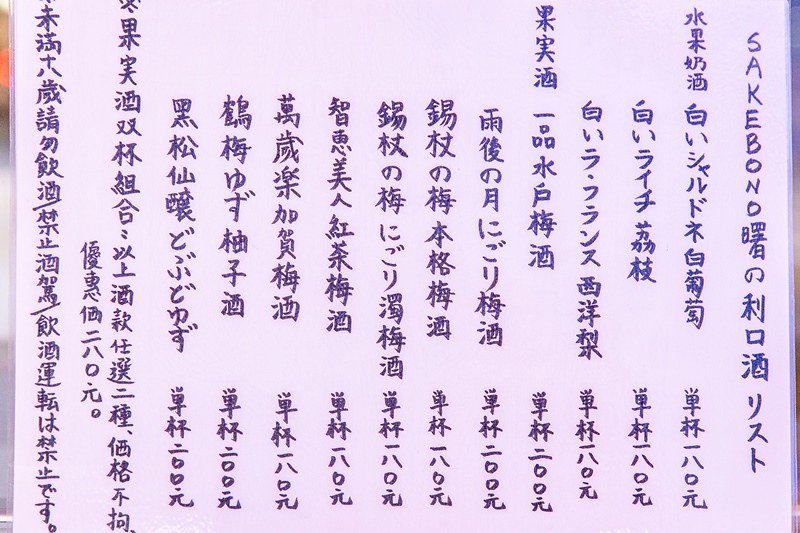 SAKEBONO曙の利口酒リスト
水果奶酒 白いシャルドネ白葡萄 単杯一八〇元
白いライチ 荔枝 単杯一八〇元
白いラ・フランス 西洋梨 単杯一八〇元
果実酒 一品水戸梅酒 単杯二〇〇元
雨後の月 にごり梅酒 単杯二〇〇元
錫杖の梅 本格梅酒 単杯一八〇元
錫杖の梅 にごり濁梅酒 単杯一八〇元
智恵美人 紅茶梅酒 単杯一八〇元
萬歳楽加賀梅酒 単杯一八〇元
鶴梅ゆず 柚子酒 単杯二〇〇元
黑松仙醸どぶどゆず 単杯二〇〇元
果実酒双杯組合:以上酒款任選二種、価格不拘、
優惠価二八〇元。
未満十八歳請勿飲酒/禁止酒駕/飲酒運転は禁止です。